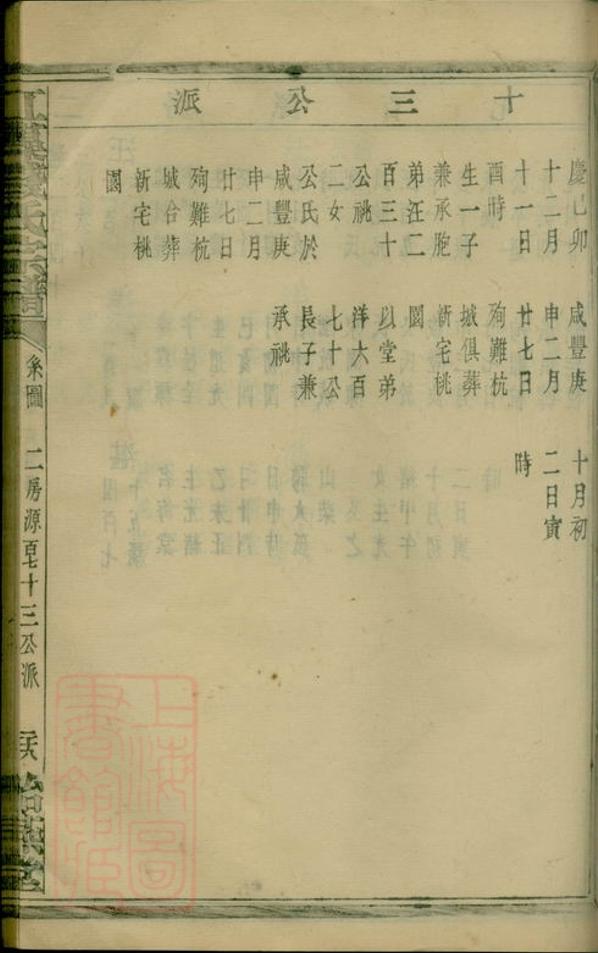 十三公派
慶己卯
十二月
十一日
酉時
生一子
兼承胞
弟汪二
百三十
公祧
二女
公氏於
咸豐庚
申二月
廿七日
殉難杭
城合葬
新宅桃
園
咸豐庚
申二月
廿七日
殉難杭
城俱葬
新宅桃
園
以堂弟
洋六百
七十公
長子兼
承祧
十月初
二日寅
時
氏宗譜
系圖
二房源百七十三公派
堂
上海圖
書館藏